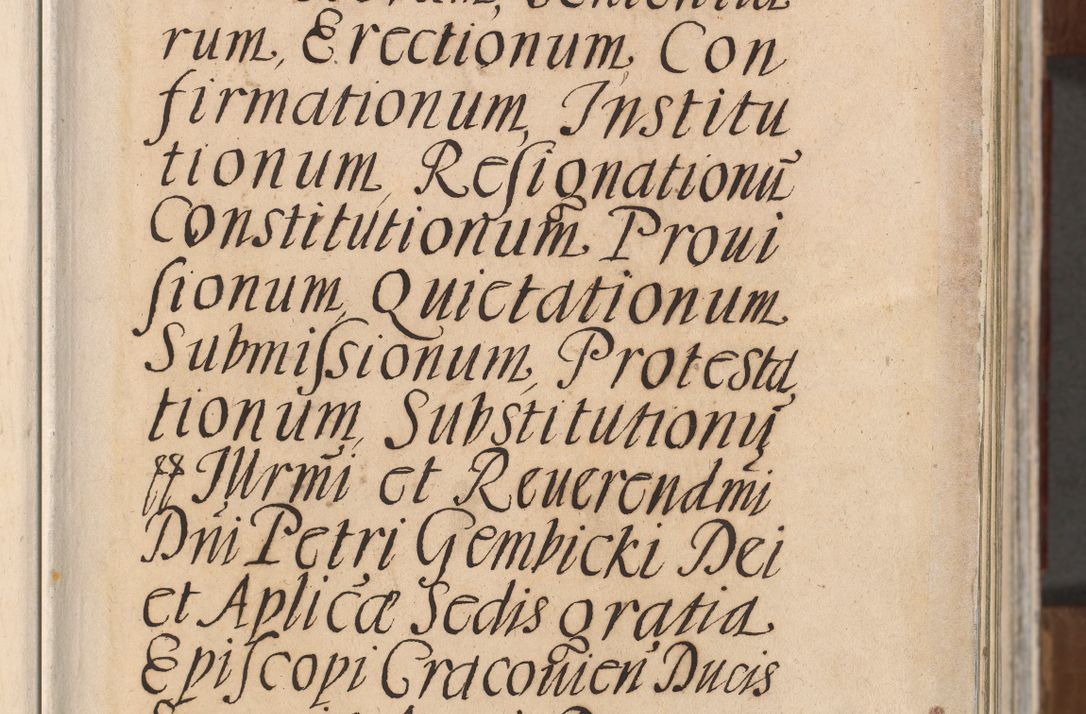 rum, Erectionum, Con
firmationum, Institu
tionum, Reſignationū
Constitutionum Proui
ſionum, Quietationum
Submiſsionum, Protesta,
tionum, Substitutionū
Illrmi et Reuerendmi
Dni Petri Gembicki Dei
et Aplicæ Sedis gratia
Epiſcopi Cracouien Ducis